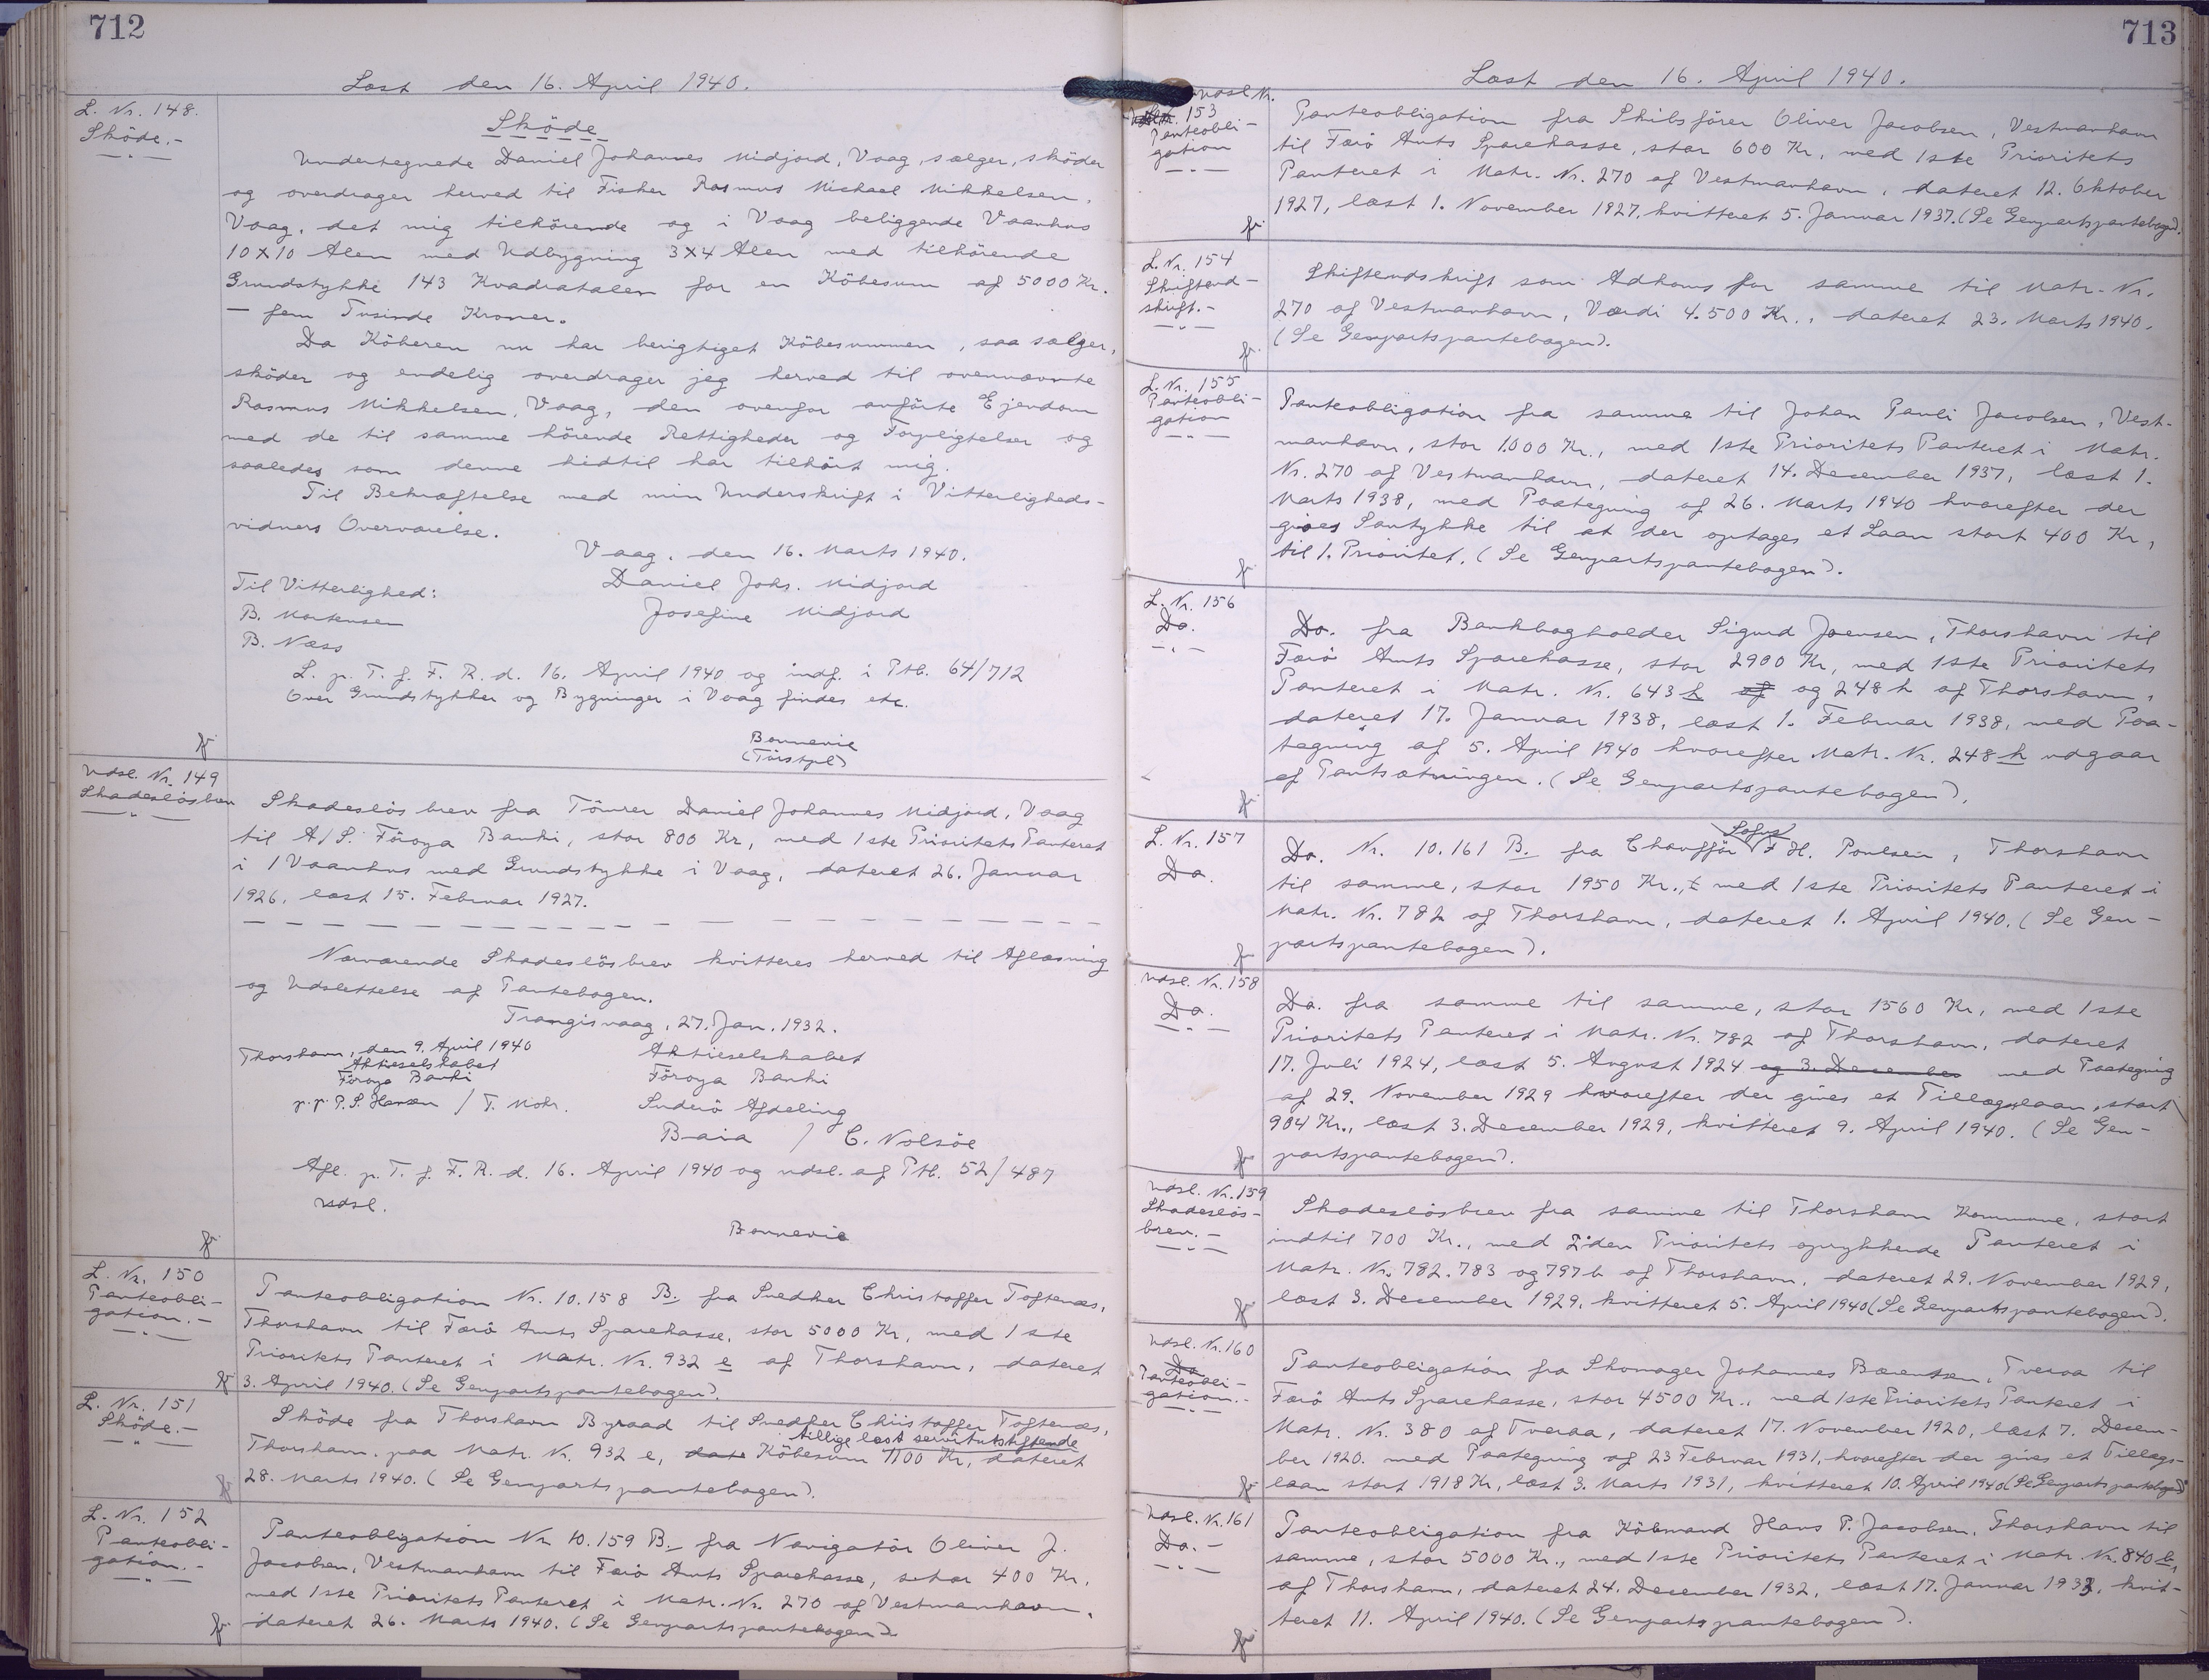 712
Læst den 16. April 1940.
L. Nr. 148.
Sköde.-
Sköde
Undertegnede Daniel Johannes Midjord, Vaag, sælger, sköder
og overdrager herved til Fisker Rasmus Michael Mikkelsen,
Vaag, det mig tilhörende og i Vaag beliggende Vaanhus
10 X 10 Alen med Udbygning 3X4 Alen med tilhörende
Grundstykke 143 Kvadratalen for en Köbesum af 5000 Kr.
- fem Tusinde Kroner.
Da Köberen nu har berigtiget Köbesummen, saa sælger,
sköder og endelig overdrager jeg herved til ovennævnte
Rasmus Mikkelsen, Vaag, den ovenfor anförte Ejendom
med de til samme hörende Rettigheder og Forpligtelser og
saaledes som denne hidtil har tilhört mig.
Til Bekræftelse med min Underskrift i Vitterligheds-
vidners Overværelse.
Vaag, den 16. Marts 1940.
Daniel Johs. Midjord
Josefine Midjord
Til Vitterlighed:
B. Mortensen
B. Næss
L. p. T. f. F. R. d. 16. April 1940 og indf. i Ptb. 64/712
Over Grundstykker og Bygninger i Vaag findes etc.
Bonnevie
fr.
Udsl. Nr. 149
Skadeslösbrev
Skadeslösbrev fra Tömrer Daniel Johannes Midjord, Vaag
til A/S. Föroya Banki, stor 800 Kr, med 1ste Prioritets Panteret
i 1 Vaanhus med Grundstykke i Vaag, dateret 26. Januar
1926, læst 15. Februar 1927.
Nærværende Skadeslösbrev kvitteres herved til Aflæsning
og Udslettelse af Pantebogen.
Trangisvaag, 27. Jan. 1932.
Aktieselskabet
Föroya Banki
Suderö Afdeling
Baia / C. Nolsöe
Thorshavn, den 9. April 1940
Aktieselskabet
Föroya Banki
p.p. P.S. Hansen / T. Mohr.
Afl. p. T. f. F. R. d. 16. April 1940 og udsl. af Ptb. 52/487
udsl.
Bonnevie
fr.
L. Nr. 150
Panteobli-
gation.-
Panteobligation Nr. 10.158 B. fra Snedker Christoffer Toftenæs,
Thorshavn til Færö Amts Sparekasse, stor 5000 Kr, med 1ste
Prioritets Panteret i Matr. Nr. 932 e af Thorshavn, dateret
3. April 1940. (Se Genpartspantebogen).
fr
L. Nr. 151
Sköde.-
Sköde fra Thorshavn Byraad til Snedker Christoffer Toftenæs,
tillige læst servitutstiftende
Thorshavn. paa Matr. Nr. 932 e, dat Köbesum 1100 Kr, dateret
28. Marts 1940. (Se Genpartspantebogen).
fr
L. Nr. 152
Panteobli-
gation.-
Panteobligation Nr 10.159 B. fra Navigatör Oliver J.
Jacobsen, Vestmanhavn til Færö Amts Sparekasse, stor 400 Kr,
med 1ste Prioritets Panteret i Matr. Nr. 270 af Vestmanhavn,
dateret 26. Marts 1940. (Se Genpartspantebogen)
fr.
713
Læst den 16. April 1940.
Udsl. Nr.
153
Panteobli-
gation
Panteobligation fra Skibsförer Oliver Jacobsen, Vestmanhavn
til Færö Amts Sparekasse, stor 600 Kr, med 1ste Prioritets
Panteret i Matr. Nr. 270 af Vestmanhavn, dateret 12. Oktober
1927, læst 1. November 1927, kvitteret 5. Januar 1937. (Se Genpartspantebogen).
fr
L. Nr. 154
Skifteud-
skrift.-
Skifteudskrift som Adkomst for samme til Matr. Nr.
270 af Vestmanhavn, Værdi 4.500 Kr., dateret 23. Marts 1940.
(Se Genpartspantebogen).
fr.
L. Nr. 155
Panteobli-
gation
Panteobligation fra samme til Johan Pauli Jacobsen, Vest-
manhavn, stor 1000 Kr., med 1ste Prioritets Panteret i Matr.
Nr. 270 af Vestmanhavn, dateret 14. December 1937, læst 1.
Marts 1938, med Paategning af 26. Marts 1940 hvorefter der
gives Samtykke til at der optages et Laan stort 400 Kr,
til 1. Prioritet. (Se Genpartspantebogen).
fr
L. Nr. 156
Do.
Do. fra Bankbogholder Sigurd Joensen, Thorshavn til
Færö Amts Sparekasse, stor 2900 Kr, med 1ste Prioritets
Panteret i Matr. Nr. 643 h af og 248 h af Thorshavn,
dateret 17. Januar 1938, læst 1. Februar 1938, med Paa-
tegning af 5. April 1940 hvorefter Matr. Nr. 248 h udgaar
af Pantsætningen. (Se Genpartspantebogen).
fr
L. Nr. 157
Do.
Sofus
Do. Nr. 10.161 B. fra Chaufför F H. Poulsen, Thorshavn
til samme, stor 1950 Kr., t med 1ste Prioritets Panteret i
Matr. Nr. 782 af Thorshavn, dateret 1. April 1940. (Se Gen-
partspantebogen).
fr
Udsl. Nr. 158
Do.
Do. fra samme til samme, stor 1560 Kr, med 1ste
Prioritets Panteret i Matr. Nr. 782 af Thorshavn, dateret
17. Juli 1924, læst 5. August 1924 og 3. December med Paategning
af 29. November 1929 hvorefter der gives et Tillægslaan, stort
904 Kr., læst 3. December 1929, kvitteret 9. April 1940. (Se Gen-
partspantebogen).
fr
Udsl. Nr. 159
Skadeslös-
brev.-
Skadeslösbrev fra samme til Thorshavn Kommune, stort
indtil 700 Kr., med 2'den Prioritets oprykkende Panteret i
Matr. Nr. 782. 783 og 797 b af Thorshavn, dateret 29. November 1929,
læst 3. December 1929, kvitteret 5. April 1940 (Se Genpartspantebogen).
fr
Udsl. Nr. 160
Do
Panteobli-
gation.-
Panteobligation fra Skomager Johannes Bærentsen, Tveraa til
Færö Amts Sparekasse, stor 4500 Kr., med 1ste Prioritets Panteret i
Matr. Nr. 380 af Tveraa, dateret 17. November 1920, læst 7. Decem-
ber 1920. med Paategning af 23 Februar 1931, hvorefter der gives et Tillægs-
laan stort 1918 Kr, læst 3. Marts 1931, kvitteret 10. April 1940 (Se Genpartspantebogen)
fr
Udsl. Nr. 161
Do.-
Panteobligation fra Köbmand Hans P. Jacobsen, Thorshavn til
samme, stor 5000 Kr., med 1ste Prioritets Panteret i Matr. Nr. 840 b,
af Thorshavn, dateret 24. December 1932, læst 17. Januar 1933, kvit-
teret 11. April 1940. (Se Genpartspantebogen).
fr